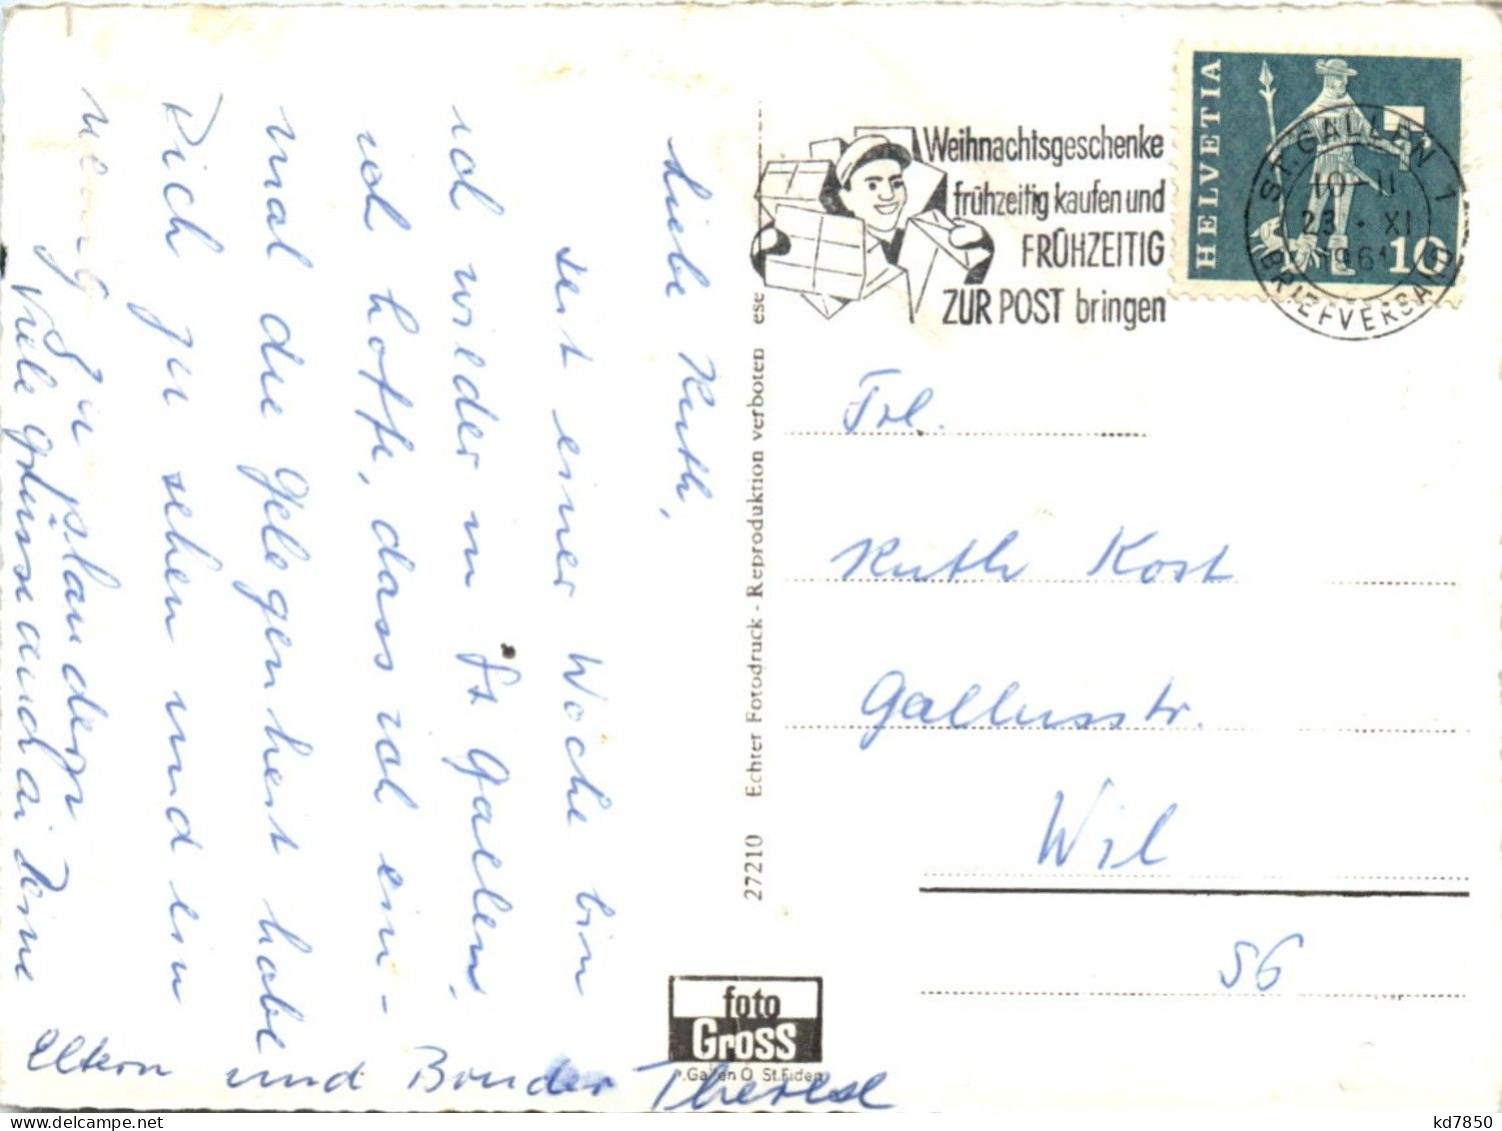 Liebe Ruth,
seit einer Woche bin
ich wieder in St Gallen,
ich hoffe, dass ich ein-
mal die Gelegenheit habe
Dich zu sehen und ein
wenig zu plaudern
Viele Grüsse auch an Deine
Eltern und Bruder Therese
27210 Echter Fotodruck - Reproduktion verboten ese
foto
Gross
St.Gallen O St.Fiden
Weihnachtsgeschenke
frühzeitig kaufen und
FRÜHZEITIG
ZUR POST bringen
HELVETIA
10
ST. GALLEN 1
10-11
23. XI
BRIEFVERSAND
Frl.
Ruth Kost
Gallusstr.
Wil
SG
kd7850